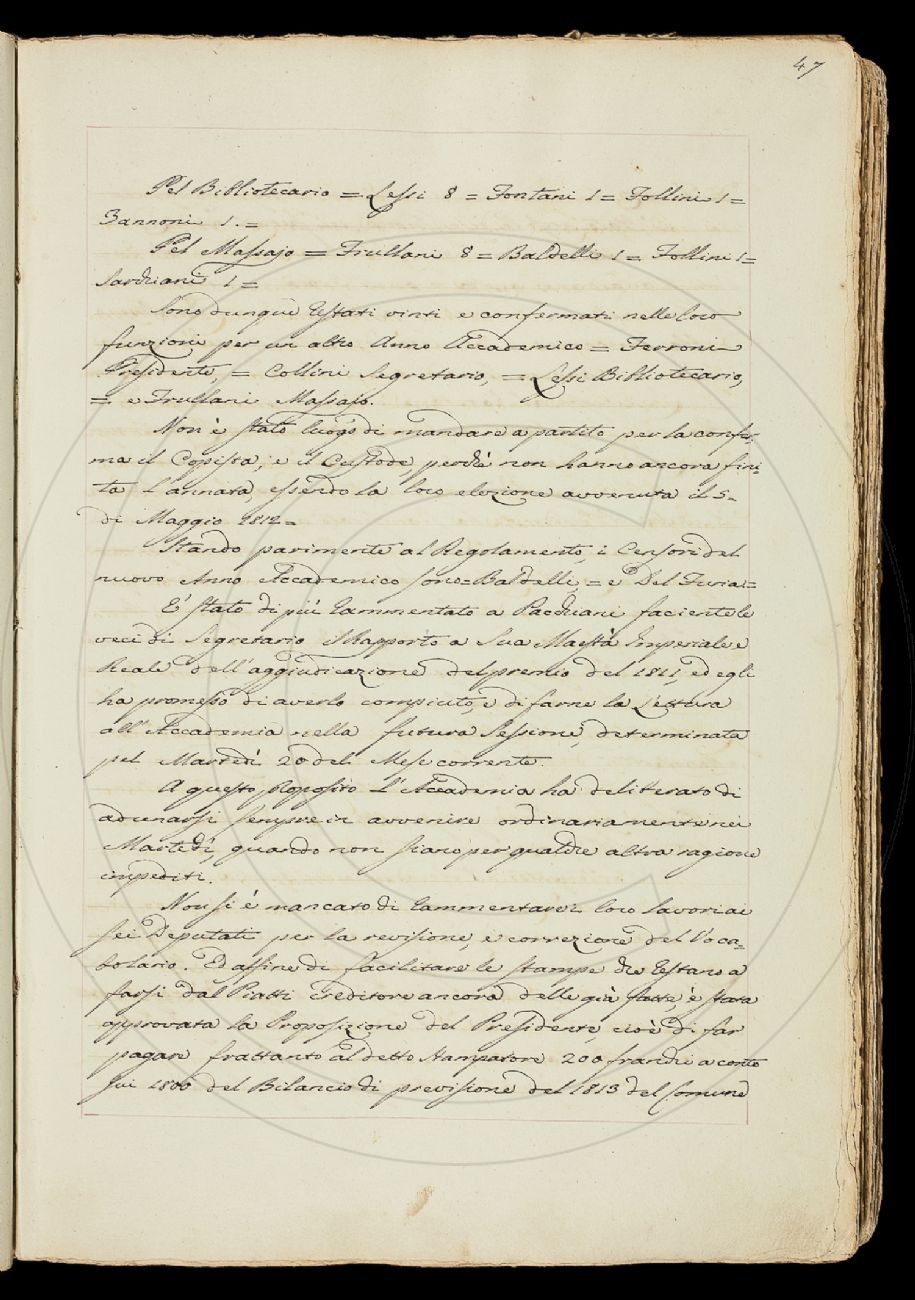 47
Pel Bibliotecario = Lessi 8 = Fontani 1 = Follini 1 =
Zannoni 1. =
Pel Massajo = Frullani 8 = Baldelli 1 = Follini 1 =
Sarchiani 1 =
Sono dunque restati vinti e confermati nelle loro
funzioni per un altro Anno Accademico = Ferroni
Presidente, = Collini Segretario, = Lessi Bibliotecario,
= e Frullani Massajo.
Non è stato luogo di mandare a partito per la confer-
ma il Copista, e il Custode, perchè non hanno ancora fini-
ta l'annata essendo la loro elezione avvenuta il 5-
di Maggio 1812 =
Stando parimente al Regolamento, i Censori del
nuovo Anno Accademico sono = Baldelli, = e Del Furia =
E' stato di più rammentato a Sarchiani facente le
veci di Segretario il Rapporto a Sua Maestà Imperiale e
Reale dell'aggiudicazione del premio del 1811, ed egli
ha promesso di averlo compiuto, e di farne la Lettura
all'Accademia nella futura Sessione, determinata
pel Martedì 20 del Mese corrente.
A questo proposito l'Accademia ha deliberato di
adunarsi sempre in avvenire ordinariamente nei
Martedì, quando non siano per qualche altra ragione
impediti.
Non si è mancato di rammentare i loro lavori ai
sei Deputati per la revisione, e correzione del Voca-
bolario. Ed affine di facilitare le stampe che restano a
farsi dal Piatti creditore ancora delle già fatte, è stata
approvata la Proposizione del Presidente, cioè di far
pagare frattanto al detto Stampatore 200 franchi a conto
sui 1800 del Bilancio di previsione del 1813 del Comune